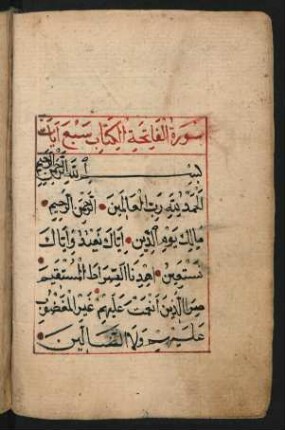 سورة الفاتحة الكتاب سبع آيات
بسم الله الرحمن الرحيم
الحمد لله رب العالمين الرحمن الرحيم
مالك يوم الدين اياك نعبد واياك
نستعين اهدنا الصراط المستقيم
صراط الذين انعمت عليهم غير المغضوب
عليهم ولا الضالين